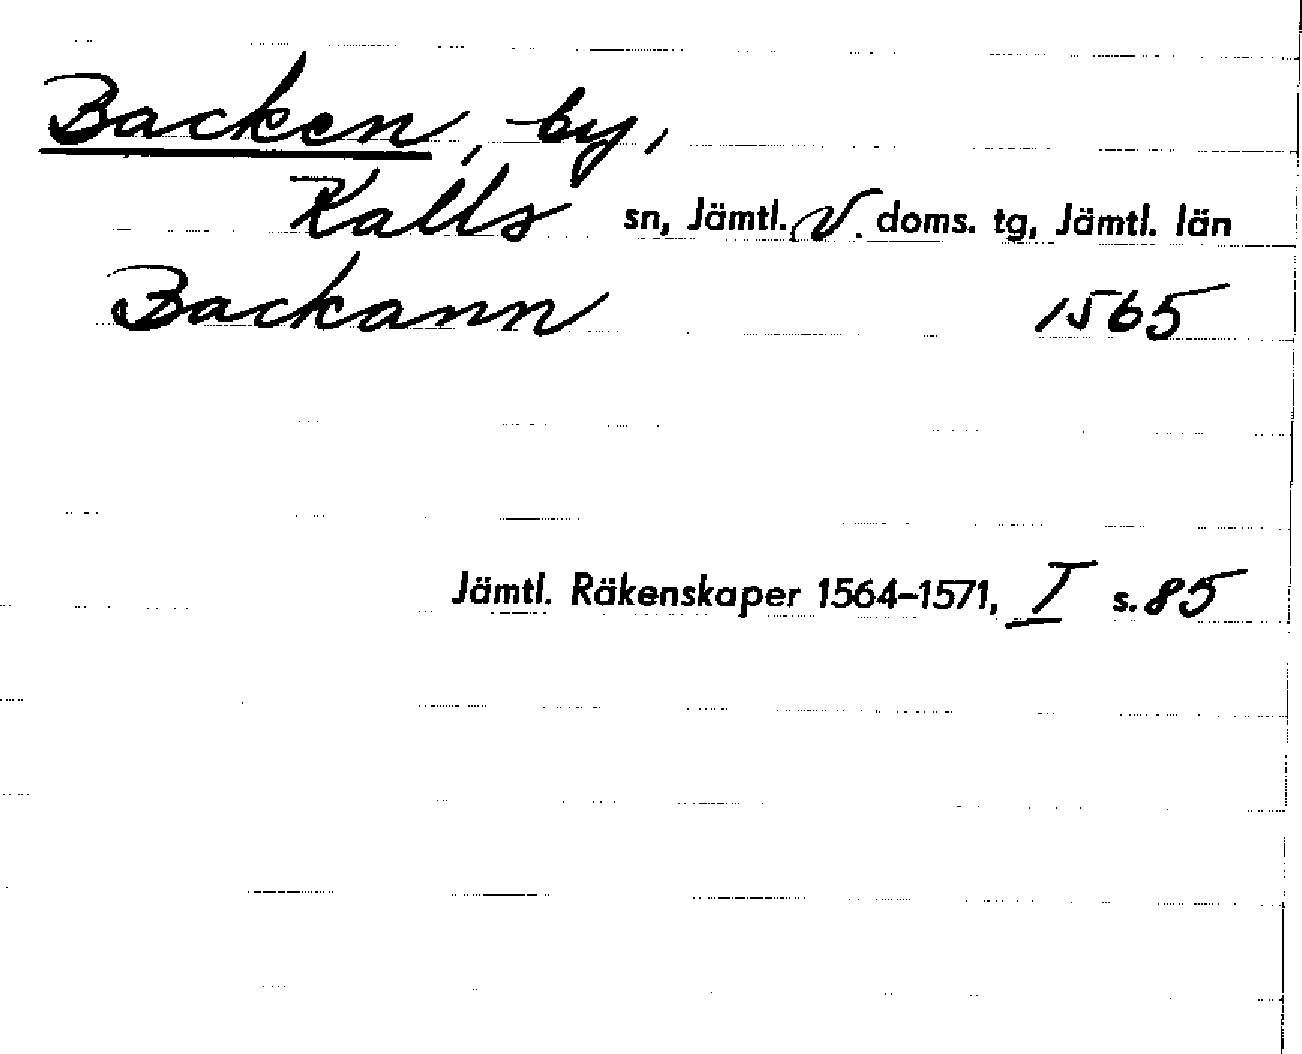 Backen, by,
Kalls sn, Jämtl. V. doms. tg, Jämtl. län
Backann 1565
Jämtl. Räkenskaper 1564–1571, I s. 85